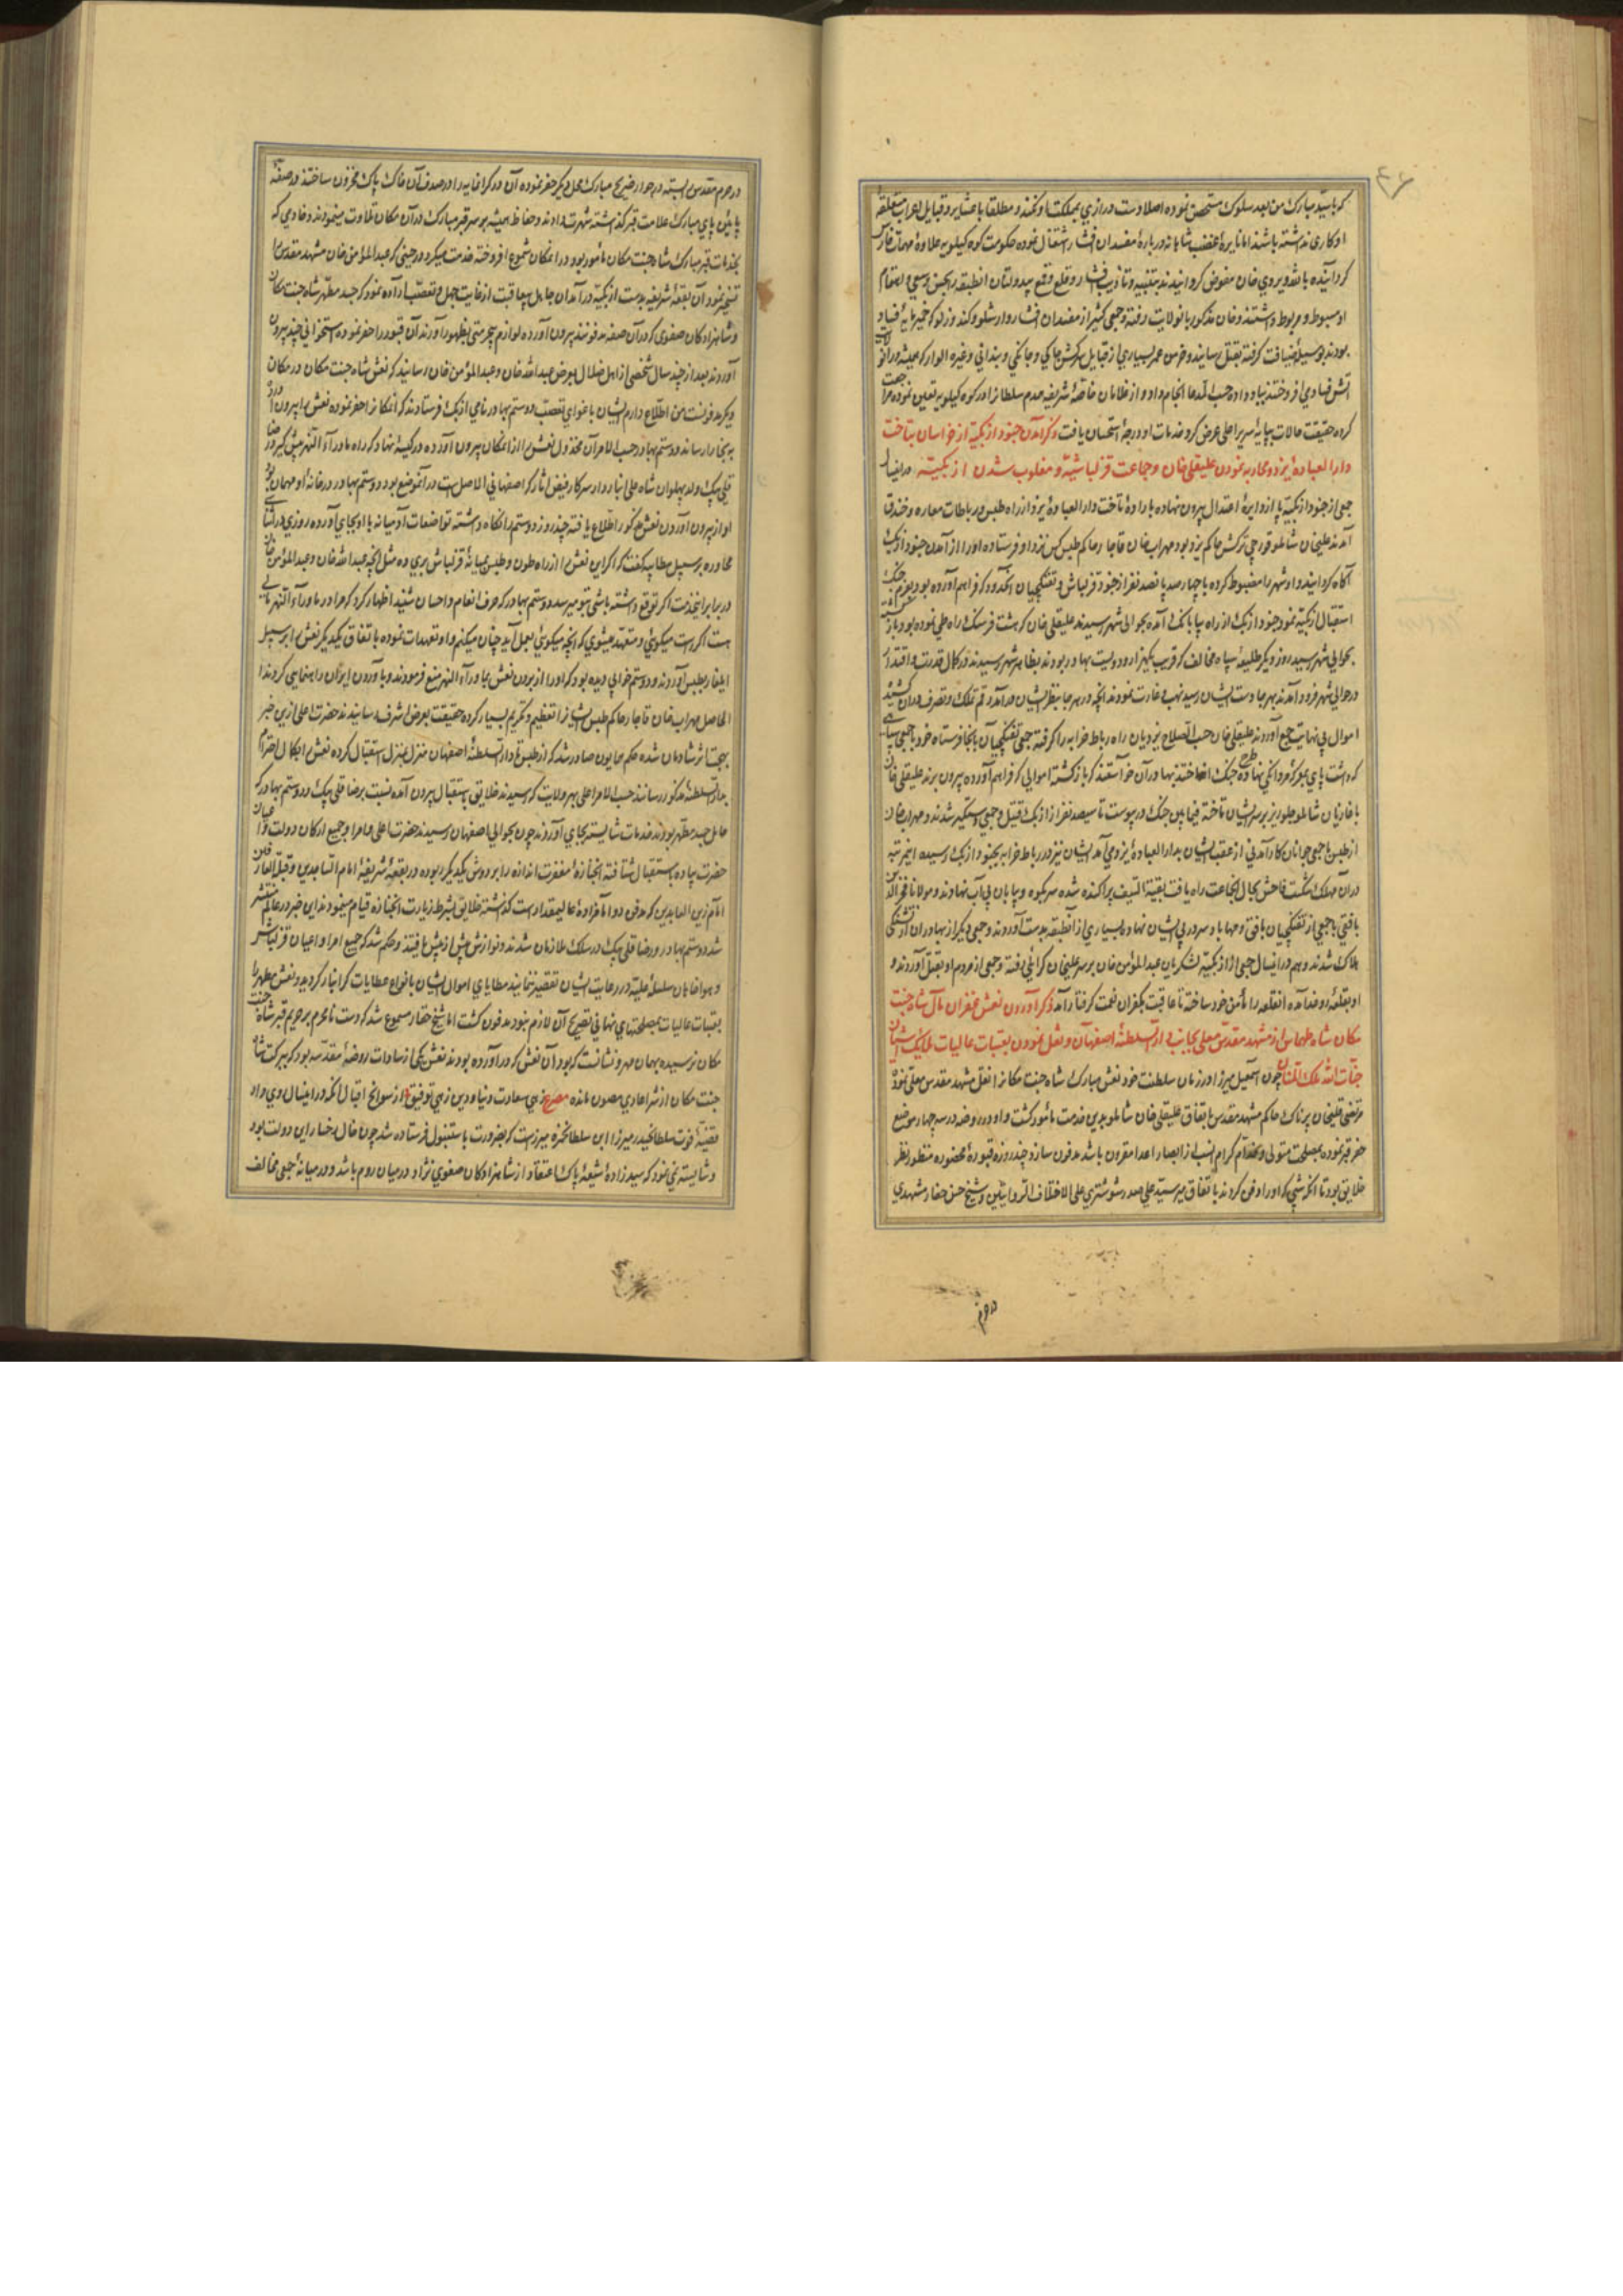 که باشد مبارک من بعد سلوک مستحسن نموده اصلا دست درازی بمملکت او نکنند و مطلقا با عشایر و قبایل اعراب متعلقه
او کاری نداشته باشند اما نایرهٔ غضب شاهانه در بارهٔ مفسدان افشار اشتعال نموده حکومت کوه کیلویه علاوهٔ مهمات فارس
کردانیده بالله ویردی خان مفوض کردانیدند بتنبیه و تادیب افشار و قلع و قمع بیدولتان انطبقه بحسن سعی و اهتمام
او مبسوط و مربوط داشتند و خان مذکور بانولایت رفته و جمعی کثیر از مفسدان افشار و ارشلو و کندوزلو که خمیر مایهٔ فساد
بودند بوسیلهٔ ضیافت کرفته بقتل رسانید و خرمن عمر بسیاری از قبایل سرکش جاکی و جانکی و بندانی وغیره الوار که همیشه در انولا
آتش فسادی افروختند بباد داده حسب المدعا انجام داد و از غلامان خاصهٔ شریفه سلطانرا در کوه کیلویه تعیین نموده مراجعت
کرده حقیقت حالات بپایهٔ سریر اعلی عرض کرد و خدمات او درجهٔ استحسان یافت ذکر آمدن جنود ازبکیه از خراسان بتاخت
دار العبادهٔ یزد و محاربه نمودن علیقلی خان و جماعت قزلباشیه و مغلوب شدن ازبکیه درینسال
جمعی از جنود ازبکیه پا از دایرهٔ اعتدال بیرون نهاده بارادهٔ تاخت دار العبادهٔ یزد از راه طبس و رباطات
آمدند علیخان شاملو قورچی ترکش حاکم یزد بود مهراب خان قاجار حاکم طبس کس نزد او فرستاده او را از آمدن جنود ازبک
آکاه کردانید و او شهر را مضبوط کرده با چهارصد پانصد نفر از جنود قزلباش و تفنکچیان آنحدود که فراهم آورده بود بعزم جنک
استقبال ازبکیه نمود جنود ازبک از راه بیابانک آمده بحوالی شهر رسیدند علیقلی خان که هشت فرسنک راه طی نموده بود بازکشته
بحوالی شهر رسید روز دیکر طلیعهٔ سپاه مخالف که قریب یکهزار و دویست بهادر بودند بظاهر شهر رسیدند در کمال قدرت و اقتدار
در حوالی شهر فرود آمدند بهر جا دست ایشان رسید نهب و غارت نمودند آنچه در هر جا بنظر ایشان درآمد رقم تملک و تصرف بران کشیدند
اموال بی نهایت جمع آوردند علیقلی خان حسب الصلاح یزدیان راه رباط خرابه را کرفته جمعی تفنکچیان بآنجا فرستاده خود با جمعی سپاهی
که داشت پای بمعرکهٔ مردانکی نهاده طرح جنک انداختند بهادران خواستند که بازکشته اموالی که فراهم آورده بیرون برند علیقلی خان
با غازیان شاملو جلوریز بر سر ایشان تاخته فیمابین جنک درپیوست تا سیصد نفر از ازبک قتیل و جمعی دستکیر شدند و مهراب خان
از طبس با جمعی جوانان کارآمدنی از عقب ایشان بدار العبادهٔ یزد می آمد ایشان نیز در رباط خرابه بجنود ازبک رسیده اینمرتبه
در آن مهلک شکست فاحش بحال انجماعت راه یافت بقیة السیف پراکنده شده سر بکوه و بیابان بی آب نهادند و مولانا فخر الدین
بافقی با جمعی از تفنکچیان بافق و بهاباد سر در پی ایشان نهاد بسیاری از آنطبقه بدست آوردند و جمعی دیکر از بهادران از تشنکی
هلاک شدند و هم درینسال جمعی از ازبکیه لشکریان عبدالمؤمن خان بر سر علیخان کرائیلی رفته و جمعی از مردم او بقتل آوردند و
او بقلعه رفته آن قلعه را مأمن خود ساخته تا عاقبت بکفران نعمت کرفتار آمد ذکر آوردن نعش غفران مآل شاه جنت
مکان شاه طهماسب از مشهد مقدس معلی بجانب دار السلطنهٔ اصفهان و نقل نمودن بعتبات عالیات
چون اسمعیل میرزا در زمان سلطنت خود نعش مبارک شاه جنت مکانرا نقل مشهد مقدس معلی نمود
مرتضی قلیخان پرناک حاکم مشهد مقدس باتفاق علیقلی خان شاملو بدین خدمت مأمور کشت و او در روضه در سه چهار موضع
حفر قبر نموده بمصلحت متولی و خدام کرام انسب از ابصار اعدا مقرون باشد مدفون سازد چند روزه قبور محفوره منظور نظر
خلایق بود تا آنکه شبی که او را دفن کردند باتفاق میر سید علی صدر شوشتری علی اختلاف الروایتین و شیخ حسن حفار مشهدی
در حرم مقدس بسته در جوار ضریح مبارک محل دیکر حفر نموده آن در کرانمایه را در صدف آن خاک پاک مخزون ساختند در صفهٔ
پایین پای مبارک علامت قبر کذاشته شهرت دادند و حفاظ همیشه بر سر قبر مبارک در آن مکان تلاوت مینمودند و خادمی که
بخدمات قبر مبارک شاه جنت مکان مأمور بود در آنمکان شموع افروخته خدمت میکرد در حینی که عبدالمؤمن خان مشهد مقدس را
تسخیر نمود آن بقعهٔ شریفه بدست ازبکیه درآمد آن جاهل بدعاقبت از غایت جهل و تعصب اراده نمود که جسد مطهر شاه جنت مکان
و شاهزادکان صفوی که در آن صفه مدفونند بیرون آورده لوازم بیحرمتی بظهور آورند آن قبور را حفر نموده استخوانی چند بیرون
آوردند بعد از چند سال شخصی از اهل ضلال بعرض عبدالله خان و عبدالمؤمن خان رسانید که نعش شاه جنت مکان در مکان
دیکر مدفونست من اطلاع دارم ایشان باغوای تعصب دوستم بهادر نامی ازبک فرستادند که آنمکانرا حفر نموده نعش را بیرون آورده
به بخارا رساند دوستم بهادر حسب الامر آن مخذول نعش را از آنمکان بیرون آورده در کیسه نهاد که راه ماوراء النهر پیش کیرد رضا
قلی بیک ولد پهلوان شاه علی انباردار سرکار فیض آثار که اصفهانی الاصل است در آنموضع بود و دوستم بهادر در خانهٔ او مهمان بود
او از بیرون آوردن نعش مذکور اطلاع یافته چند روز دوستم را نکاه داشته تواضعات آدمیانه با او بجای آورده روزی در اثنای
محاوره بر سبیل مطایبه کفت که اکر این نعش را از راه طون و طبس بمیانهٔ قزلباش بری ده مثل آنچه عبدالله خان و عبدالمؤمن خان
در برابر اینخدمت اکر توقع داشته باشی بتو میرسد دوستم بهادر که حرف انعام و احسان شنید اظهار کرد که مرا در ماوراء النهر مالی
هست اکر راست میکوئی و متعهد میشوی که آنچه میکوئی بعمل آید چنان میکنم و او تعهدات نموده باتفاق یکدیکر نعش را بر سبیل
ایلغار بطبس آوردند و دوستم خوابی دیده بود که او را از بردن نعش بماوراء النهر منع فرمودند و بآوردن ایران راهنمایی کردند
الحاصل مهراب خان قاجار حاکم طبس ایشانرا تعظیم و تکریم بسیار کرده حقیقت بعرض اشرف رسانیدند حضرت اعلی ازین خبر
بهجت اثر شادمان شده حکم همایون صادر شد که از طبس تا دار السلطنهٔ اصفهان منزل بمنزل استقبال کرده نعش را بکمال احترام
بدار السلطنهٔ مذکور رسانند حسب الامر اعلی بهر ولایت که رسیدند خلایق باستقبال بیرون آمده نسبت برضا قلی بیک و دوستم بهادر که
حامل جسد مطهر بودند خدمات شایسته بجای آوردند چون بحوالی اصفهان رسیدند حضرت اعلی و امرا و جمیع ارکان دولت و اعیان
حضرت پیاده باستقبال شتافته آنجنازهٔ مغفرت اندازه را بر دوش یکدیکر ربوده در بقعهٔ شریفهٔ امام الساجدین و قبلة العارفین
امام زین العابدین که مدفن دو امامزادهٔ عالیمقدار است کذاشته خلایق بشرط زیارت آنجنازه قیام مینمودند این خبر در عالم منتشر
شد دوستم بهادر و رضا قلی بیک در سلک ملازمان شدند و نوازش بیش از پیش یافتند و حکم شد که جمیع امرا و اعیان قزلباش
و هواخاهان سلسلهٔ علیه در رعایت ایشان تقصیر ننمایند مطایای اموال ایشان بانواع عطایات کرانبار کردید و نعش مطهر را
بعتبات عالیات بمصلحتهای نهانی تصریح آن لازم نبود مدفون کشت اما از شیخ حفار مسموع شد که دست نامحرم بر حریم قبر شاه جنت
مکان نرسیده بهمان مهر و نشانست که بود آن نعش که درآورده بودند نعش یکی از سادات روضهٔ مقدسه بود که ببرکت شاه
جنت مکان از شر اعادی مصون مانده مصرع زهی سعادت دنیا و دین زهی توفیق از سوانح اقبال آنکه درینسال روی داد
قضیهٔ فوت سلطان حیدر میرزا ابن سلطان حمزه میرزاست که بضرورت باستنبول فرستاده شد چون خال رخسار این دولت بود
و شایسته نمی نمود که سیدزادهٔ شیعهٔ پاک اعتقاد از شاهزادکان صفوی نژاد در میان روم باشد و در میانهٔ جمعی مخالف